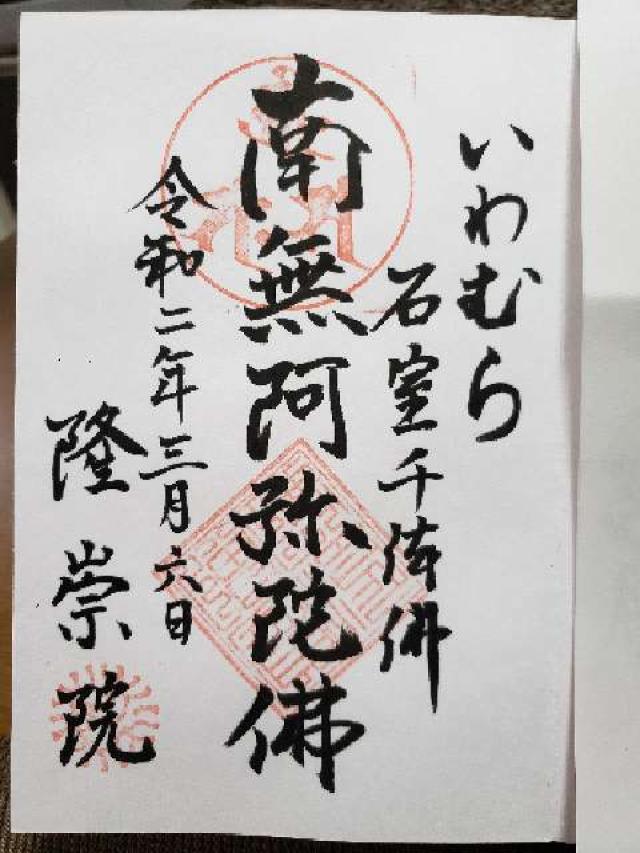 いわむら
石室千体佛
南無阿弥陀佛
令和二年三月六日
隆崇院